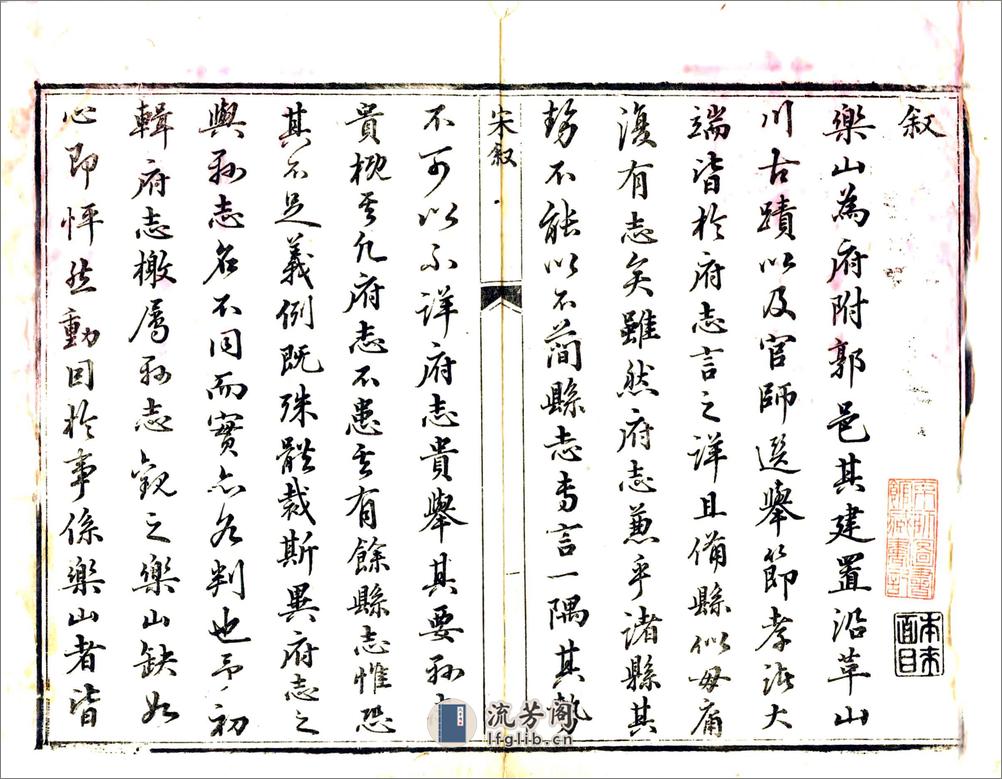 叙
樂山為府附郭邑其建置沿革山
川古蹟以及官師選舉節孝諸大
端皆於府志言之詳且備縣似毋庸
復有志矣雖然府志兼乎諸縣其
勢不能以不簡縣志專言一隅其勢
宋叙
不可以不詳府志貴舉其要縣志
貴概其凡府志不患其有餘縣志惟恐
其不足義例既殊體裁斯異府志之
與縣志名不同而實亦各判也予初
輯府志檄屬縣志觀之樂山缺如
心即怦然動因於事係樂山者皆
本來面目
流芳阁
lfglib.cn